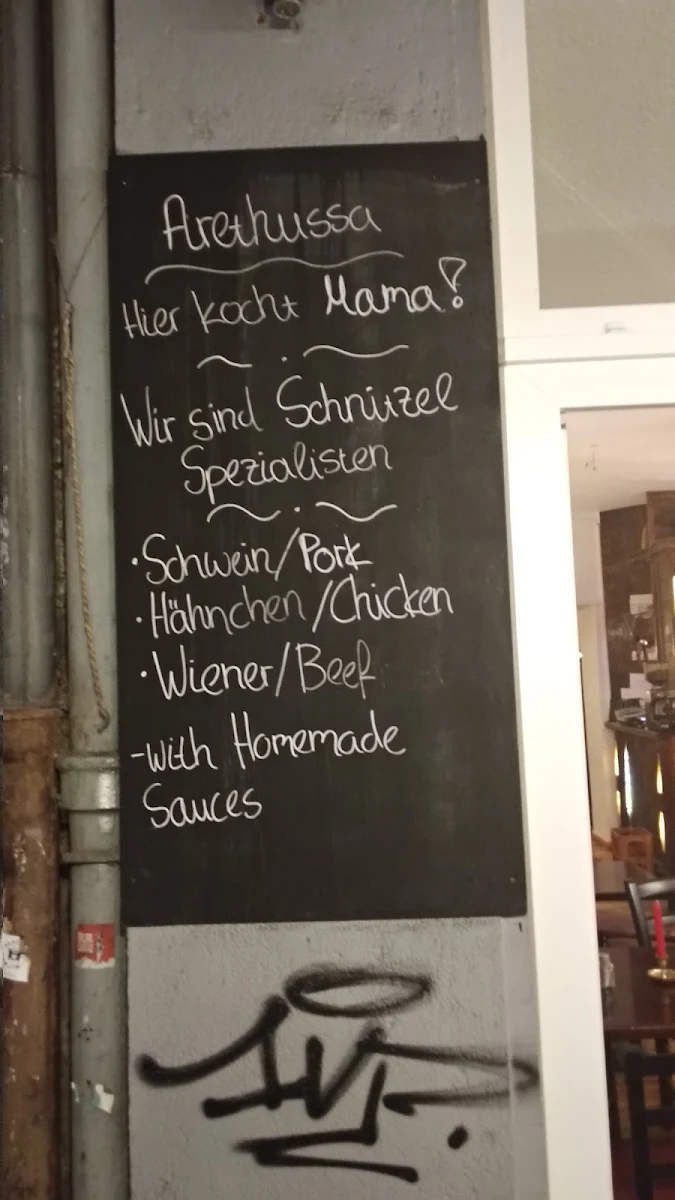 Arethussa
Hier kocht Mama!
Wir sind Schnitzel
Spezialisten
·Schwein/Pork
·Hähnchen/Chicken
·Wiener/Beef
-with Homemade
Sauces